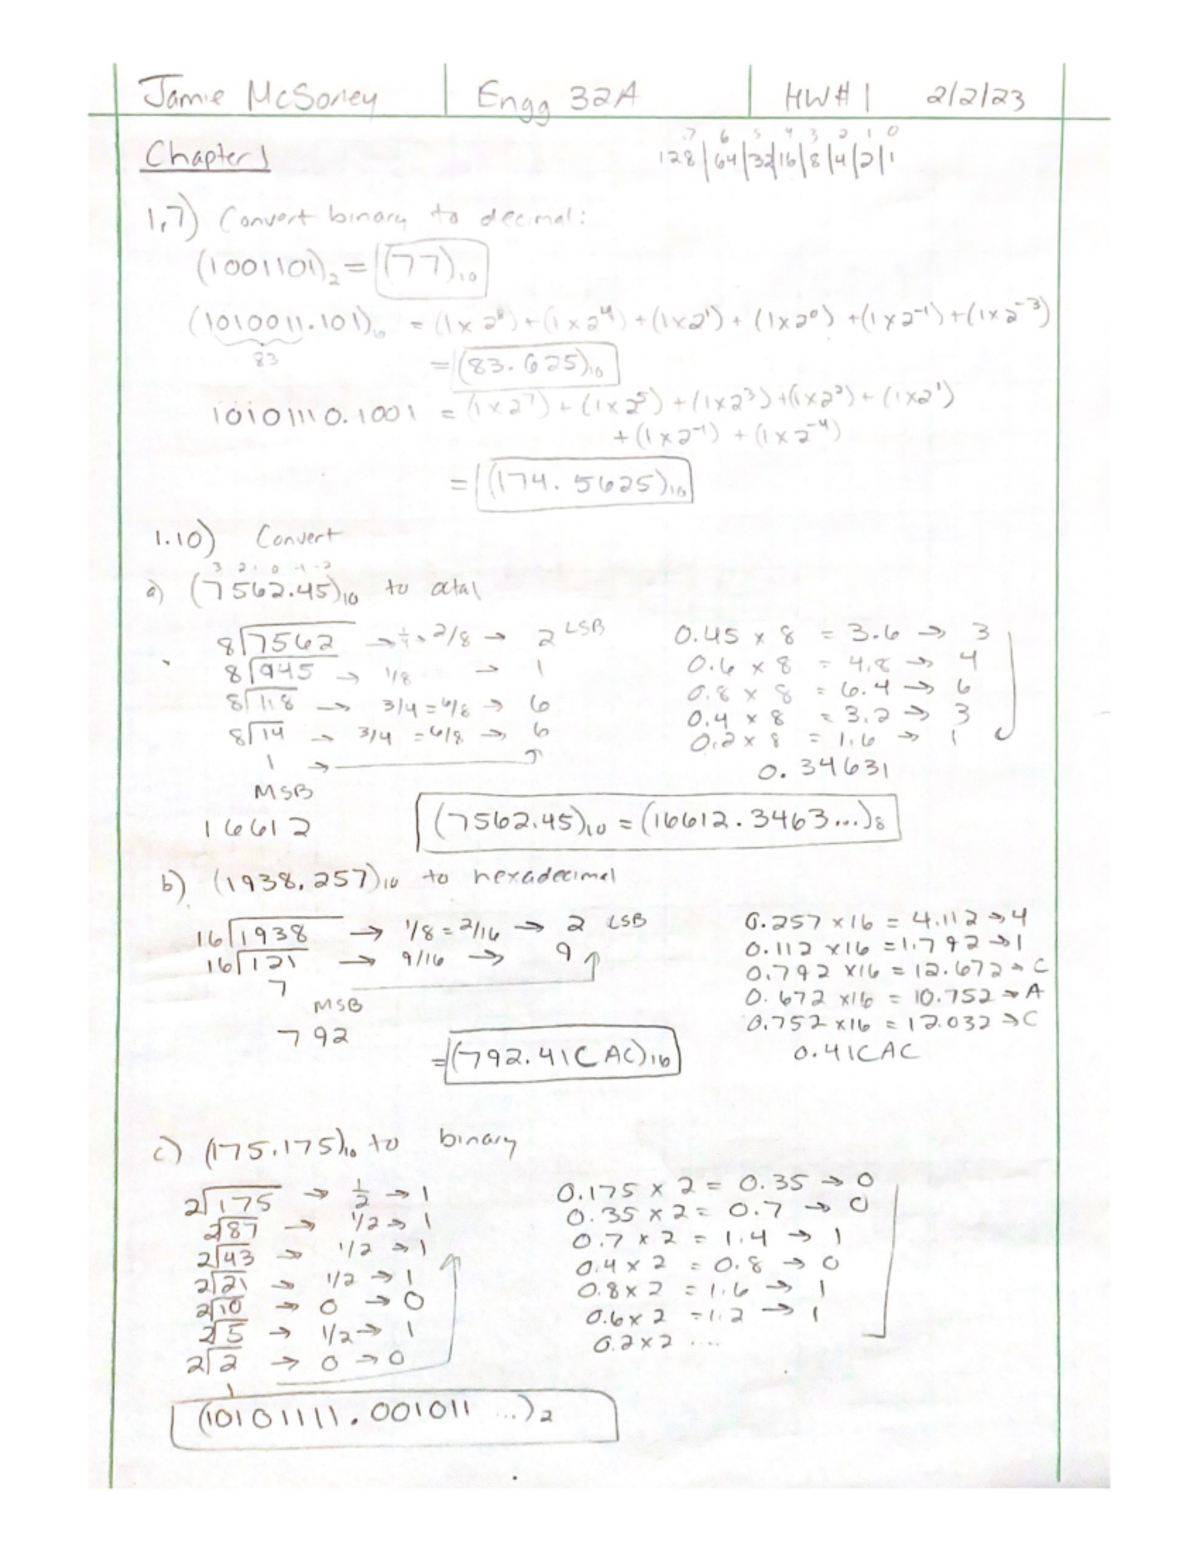 Jamie McSorley Engg 32A HW# 1 2/2/23
7 6 5 4 3 2 1 0
Chapter 1 128|64|32|16|8|4|2|1
1.7) Convert binary to decimal:
(1001101)₂ = (77)₁₀
(1010011.101)₁₆ = (1×2⁶)+(1×2⁴)+(1×2¹)+(1×2⁰)+(1×2⁻¹)+(1×2⁻³)
83
= (83.625)₁₀
10101110.1001 = (1×2⁷)+(1×2⁵)+(1×2³)+(1×2²)+(1×2¹)
+(1×2⁻¹)+(1×2⁻⁴)
= (174.5625)₁₀
1.10) Convert
3 2 1 0 -1 -2
a) (7562.45)₁₀ to octal
8√7562 → 1/4 = 2/8 → 2 LSB 0.45 × 8 = 3.6 → 3
8√945 → 1/8 → 1 0.6 × 8 = 4.8 → 4
8√118 → 3/4 = 6/8 → 6 0.8 × 8 = 6.4 → 6
8√14 → 3/4 = 6/8 → 6 0.4 × 8 = 3.2 → 3
1 → 0.2 × 8 = 1.6 → 1
MSB 0.34631
16612 (7562.45)₁₀ = (16612.3463...)₈
b) (1938.257)₁₀ to hexadecimal
16√1938 → 1/8 = 2/16 → 2 LSB 0.257 × 16 = 4.112 → 4
16√121 → 9/16 → 9 0.112 × 16 = 1.792 → 1
7 0.792 × 16 = 12.672 → C
MSB 0.672 × 16 = 10.752 → A
792 0.752 × 16 = 12.032 → C
= (792.41CAC)₁₆ 0.41CAC
c) (175.175)₁₀ to binary
2√175 → 1/2 → 1 0.175 × 2 = 0.35 → 0
2√87 → 1/2 → 1 0.35 × 2 = 0.7 → 0
2√43 → 1/2 → 1 0.7 × 2 = 1.4 → 1
2√21 → 1/2 → 1 0.4 × 2 = 0.8 → 0
2√10 → 0 → 0 0.8 × 2 = 1.6 → 1
2√5 → 1/2 → 1 0.6 × 2 = 1.2 → 1
2√2 → 0 → 0 0.2 × 2 ....
1
(10101111.001011 ...)₂